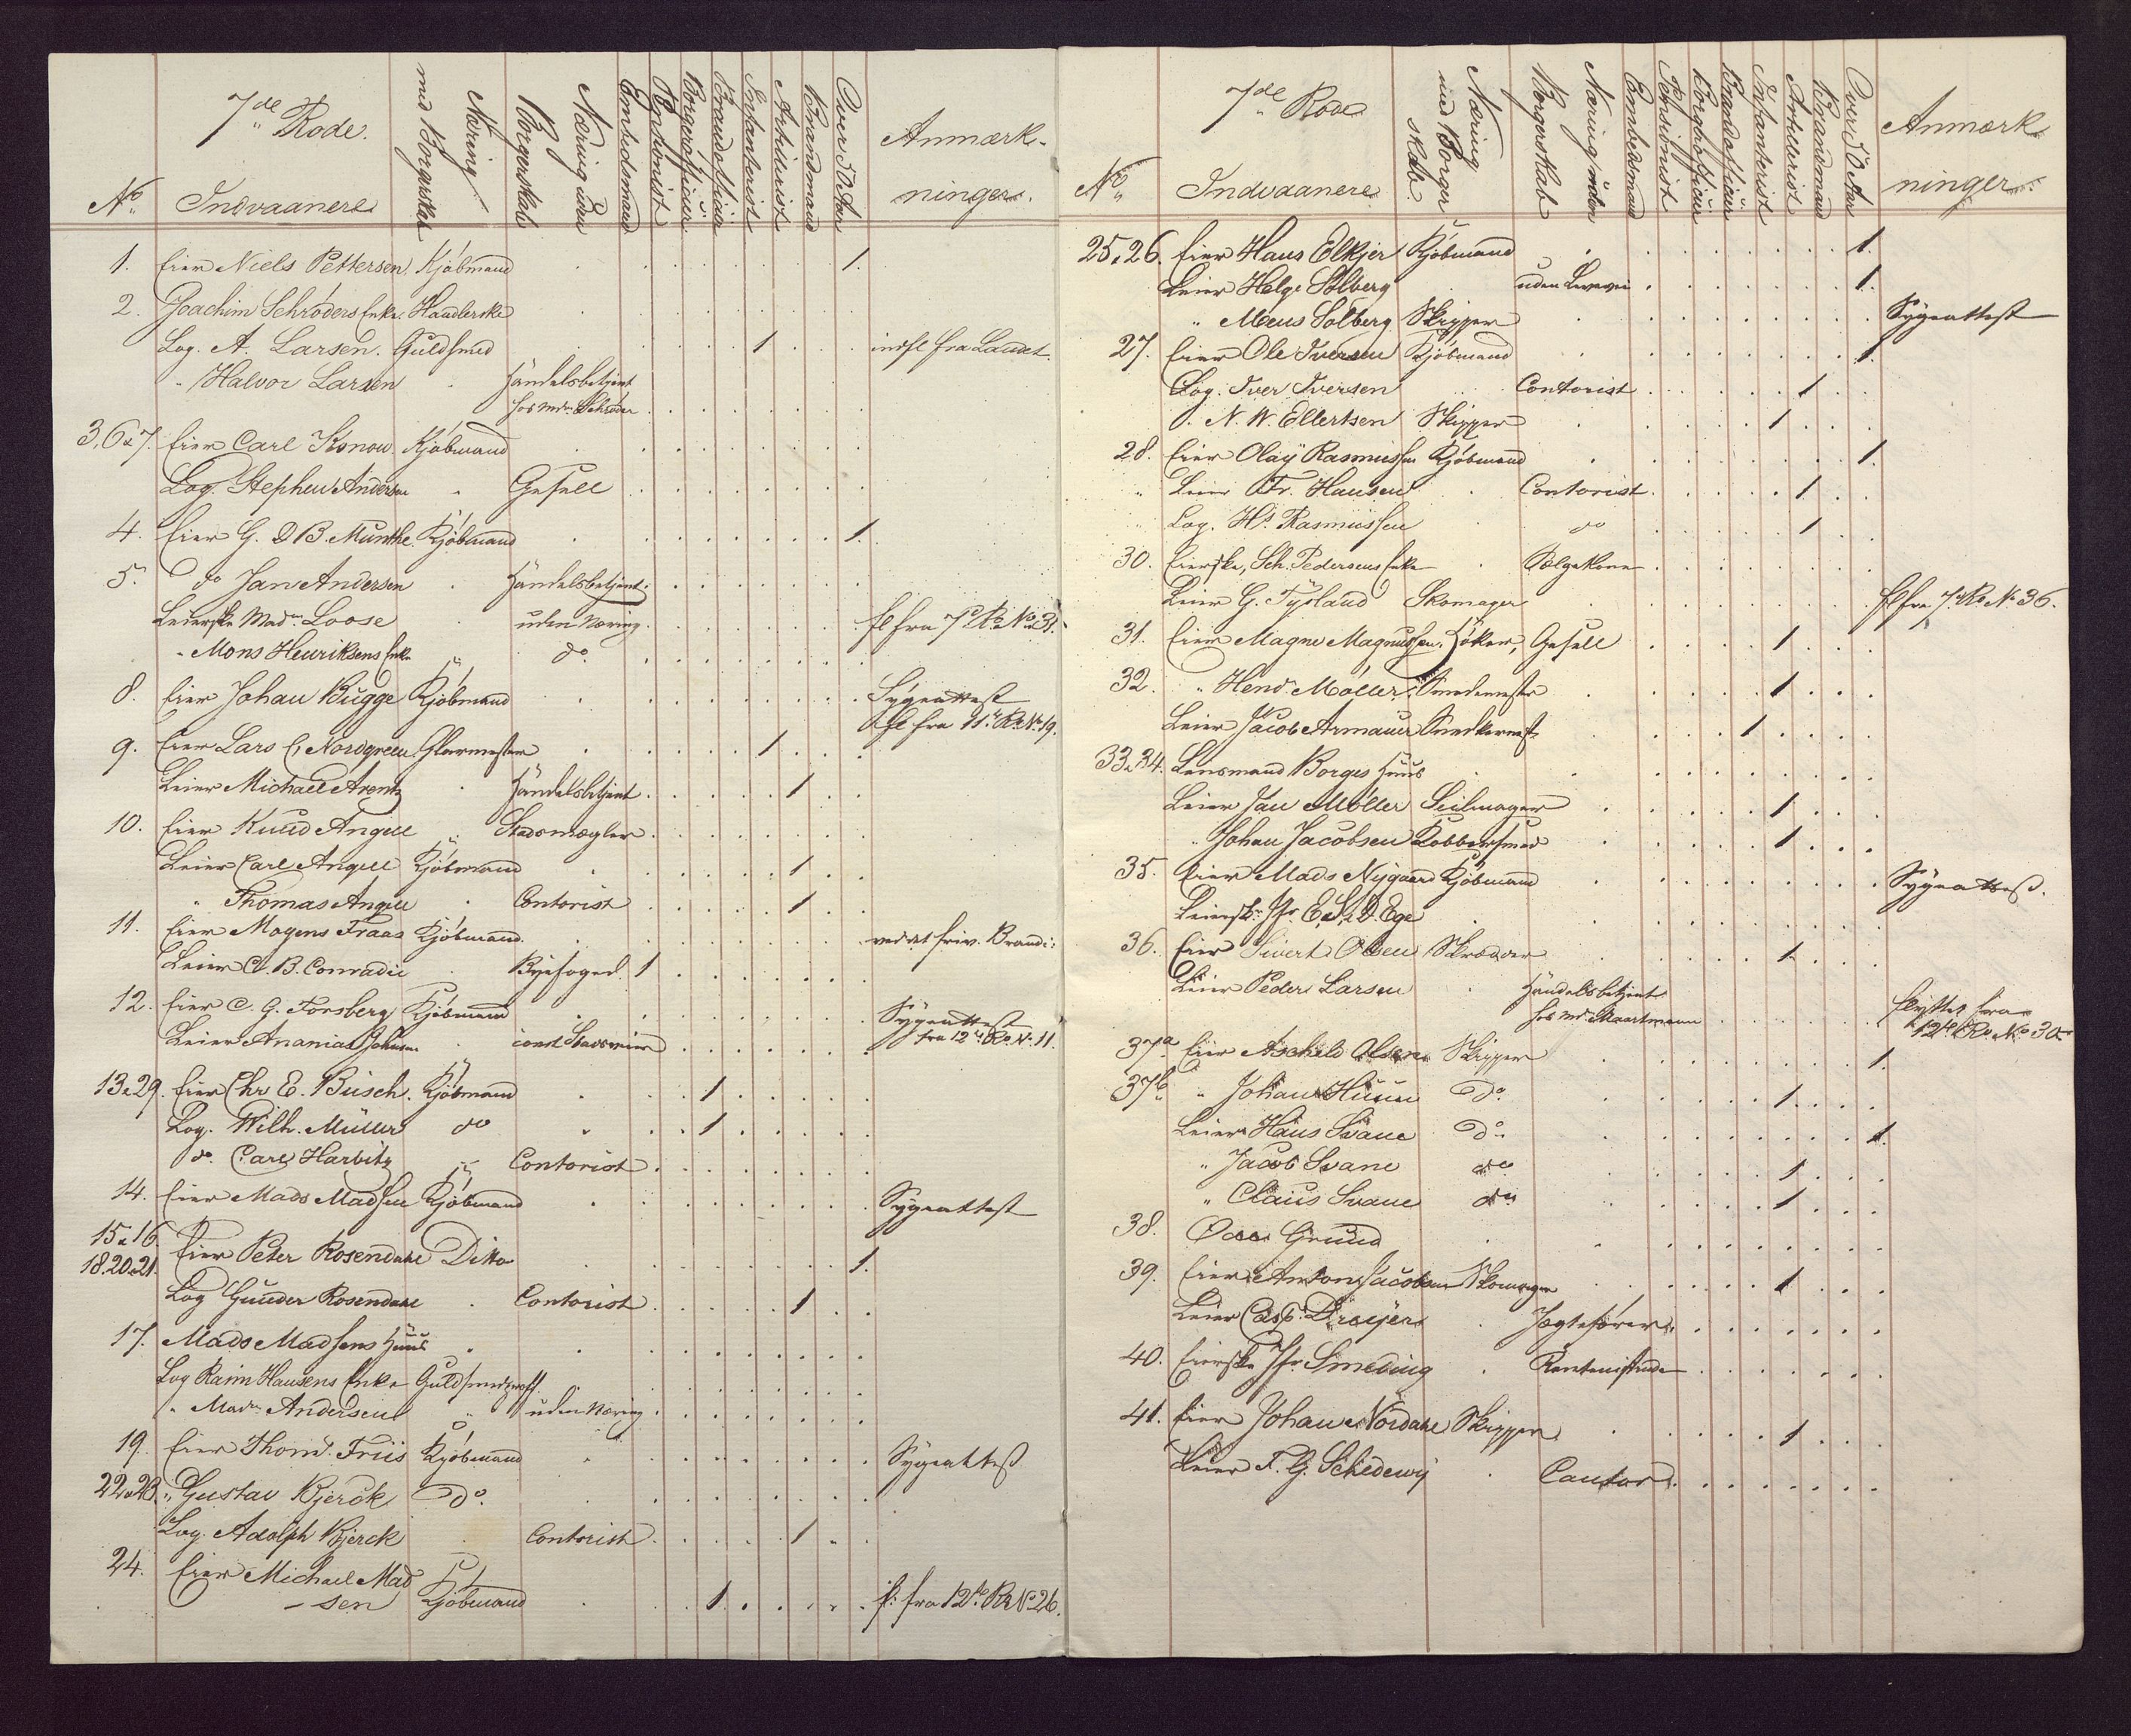 7de Rode.
No.
Indvaanere
Næring med Borgerskab
Næring uden Borgerskab
Embedsmand
Pensionist
Borgerofficier
Brandofficier
Infanterist
Artillerist
Brandmand
Over 50 Aar
Anmærk-
ninger.
1. Eier Niels Pettersen Kjöbmand 1.
2. Joachim Schröders Enke Handlerske
Log. A. Larsen. Guldsmed 1 indfl fra Landet.
" Halvor Larsen Handelsbetjent
hos Mdm Schröder
3, 6 & 7. Eier Carl Konow. Kjöbmand
Log. Stephen Andersen Gesell
4. Eier G. D B. Munthe. Kjöbmand 1.
5. do Jan Andersen Handelsbetjent
Leierske Madm Loose uden Næring fl fra 7de Ro. No 31.
" Mons Henriksens Enke do.
8. Eier Johan Bugge Kjöbmand Sygeattest
fl fra 11te Ro. No 19.
9. Eier Lars C. Nordgreen Glarmester 1
Leier Michael Arentz Handelsbetjent 1
10. Eier Knud Angell Stadsmægler
Leier Carl Angell Kjöbmand 1
" Thomas Angell Contorist 1
11. Eier Mogens Fraas Kjöbmand ved at friv. Brandi:
Leier C. B. Conradie Byefoged 1
12. Eier C. G. Forsberg Kjöbmand Sygeattest
Leier Ananias Johnsen const fra 12te Ro. No. 11.
13 & 29. Eier Chr E. Büsch. Kjöbmand 1
Log. Wilh. Müller do 1
do. Carl Harbitz Contorist
14. Eier Mads Madsen Kjöbmand Sygeattest
15 & 16.
18. 20 & 21. Eier Peter Rosendahl Ditto 1.
Log Gunder Rosendahl Contorist 1
17. Mads Madsens Huus
Log Raim Hansens Enke
" Madm Andersen uden Næring
19. Eier Thom. Friis Kjöbmand Sygeattest
22 & 23. " Gustav Bjerck do.
Log. Adolph Bjerck Contorist 1
24. Eier Michael Mad
-sen Kjöbmand 1 fl: fra 12te Ro No 26.
7de Rode
No
Indvaanere
Næring med Borgerskab.
Næring uden Borgerskab
Embedsmand
Pensionist
Borgerofficier
Brandofficier
Infanterist
Artillerist
Brandmand
Over 50 Aar
Anmærk
ninger.
25 & 26. Eier Hans Elkjer Kjöbmand 1.
Leier Helge Solberg uden Levevei 1.
" Meus Solberg Skipper Sygeattest
27. Eier Ole Iversen Kjöbmand 1.
Log. Iver Iversen Contorist 1
" N. W. Ellertsen Skipper 1
28. Eier Olaÿ Rasmussen Kjöbmand 1.
" Leier Fr. Hansen Contorist 1
Log. Hs. Rasmussen do 1
30. Eierske, Sch. Pedersens Enke Sælgekone
Leier G. Tÿsland Skomager fl fra 7de Ro No 36.
31. Eier Magne Magnussen. Höker, Gesell 1
32. " Hend. Möller. Smedemester 1
Leier Jacob Armauer Snedkermest. 1
33 & 34. Lensmand Borges Huus
Leier Jan Möller Seilmager 1
" Johan Jacobsen Kobbersmed 1
35. Eier Mads Nÿgaard Kjöbmand Sygeattest.
Leiersk. Jfr E. & D. Ege
36. Eier Sivert Olsen Skrædder 1
Leier Peder Larsen Handelsbetjent
hos Mr. Maartmann flyttet fra
12te Ro. No. 30
37a Eier Aschild Olsen Skipper 1.
37b " Johan Huun do. 1
Leier Hans Svane do. 1.
" Jacob Svane do 1
" Claus Svane do 1
38. Öde Grund
39. Eier Anton Jacobsen Skomager 1
Leier Casp. Dreÿer Jægtefører
40. Eierske Jfr Smeding Rentenistinde
41. Eier Johan Nordahl Skipper 1
Leier F. G. Schedewÿ Cantor